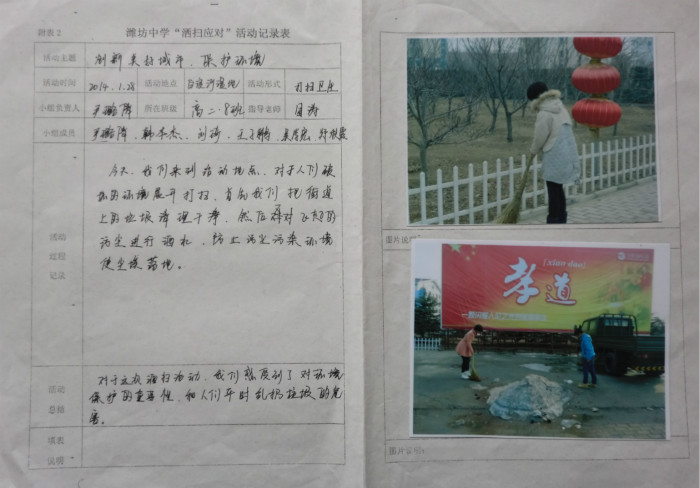 附表2
潍坊中学“洒扫应对”活动记录表
活动主题 创新美好城市、保护环境
活动时间 2014.1.28 活动地点 白浪河湿地 活动形式 打扫卫生
小组负责人 尹鹏 所在班级 高二·8班 指导老师
小组成员 尹鹏
活动
过程
记录
今天,我们来到活动地点,对于人们破
坏的环境展开打扫,首先我们把街道
上的垃圾清理干净,然后对飞起的
污尘进行洒水,防止污尘污染环境
使尘埃落地。
活动
总结
对于这次洒扫活动,我们感受到了对环境
保护的重要性,和人们平时乱扔垃圾的危
害。
填表
说明
图片说明
[xiao dao]
孝道
图片说明: